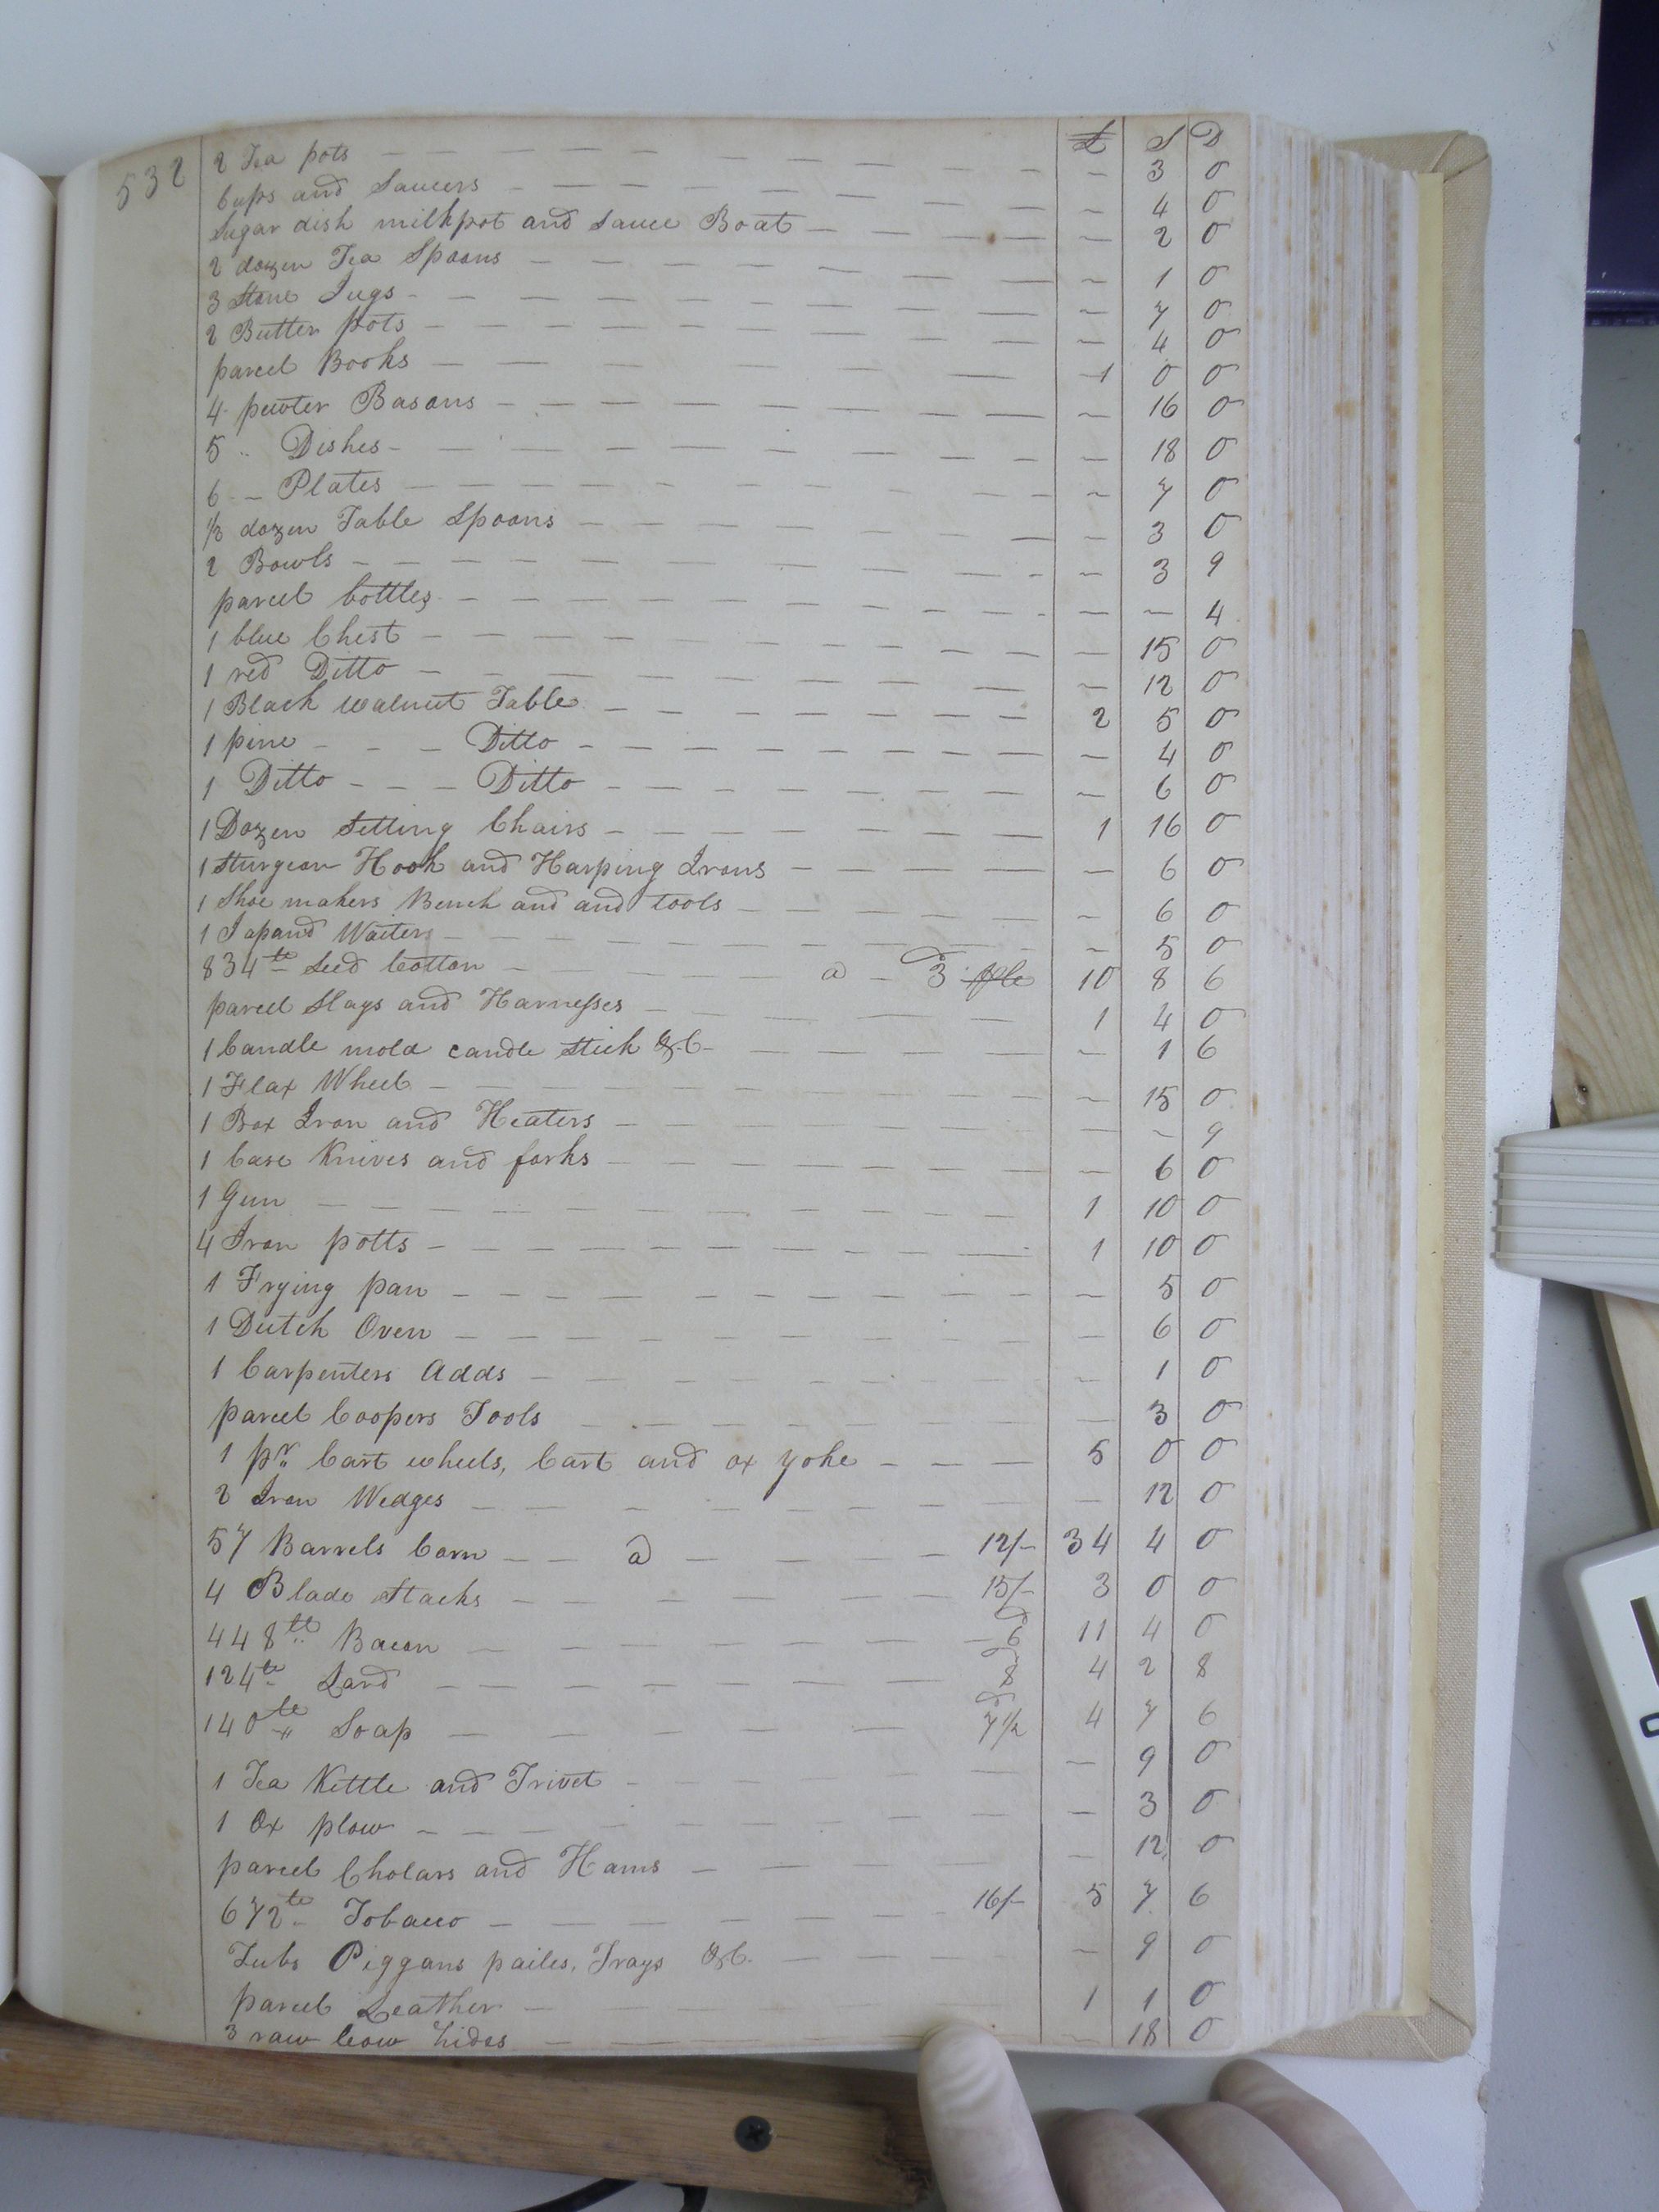 532
£ S D
2 Tea pots — 3 0
Cups and Saucers — 4 0
Sugar dish milkpot and Sauce Boat — 2 0
2 dozen Tea Spoons — 1 0
3 Stone Jugs — 7 0
2 Butter pots — 4 0
parcel Books 1 0 0
4 pewter Basons — 16 0
5 " Dishes — 18 0
6 — Plates — 7 0
1/2 dozen Table Spoons — 3 0
2 Bowls — 3 9
parcel bottles — — 4
1 blue Chest — 15 0
1 red Ditto — 12 0
1 Black walnut Table 2 5 0
1 pine Ditto — 4 0
1 Ditto Ditto — 6 0
1 Dozen Setting Chairs 1 16 0
1 Sturgeon Hook and Harping Irons — 6 0
1 Shoe makers Bench and and tools — 6 0
1 Japand Waiters — 5 0
834 lb Seed Cotton a 3d 10 8 6
parcel Slays and Harnesses 1 4 0
1 Candle mold candle Stick &C — 1 6
1 Flax Wheel — 15 0
1 Box Iron and Heaters — — 9
1 Case Knives and forks — 6 0
1 Gun 1 10 0
4 Iron potts 1 10 0
1 Frying pan — 5 0
1 Dutch Oven — 6 0
1 Carpenters Adds — 1 0
parcel Coopers Tools — 3 0
1 pr Cart wheels, Cart and ox yoke 5 0 0
2 Iron Wedges — 12 0
57 Barrels Corn a 12/– 34 4 0
4 Blade Stacks 15/– 3 0 0
448 lb Bacon 6d 11 4 0
124 lb Lard 8d 4 2 8
140 lb Soap 7½d 4 7 6
1 Tea Kettle and Trivet — 9 0
1 Ox plow — 3 0
parcel Cholars and Hams — 12 0
672 lb Tobacco 16/– 5 7 6
Tubs Piggans pailes, Trays &C. — 9 0
parcel Leather 1 1 0
3 raw Cow hides — 18 0